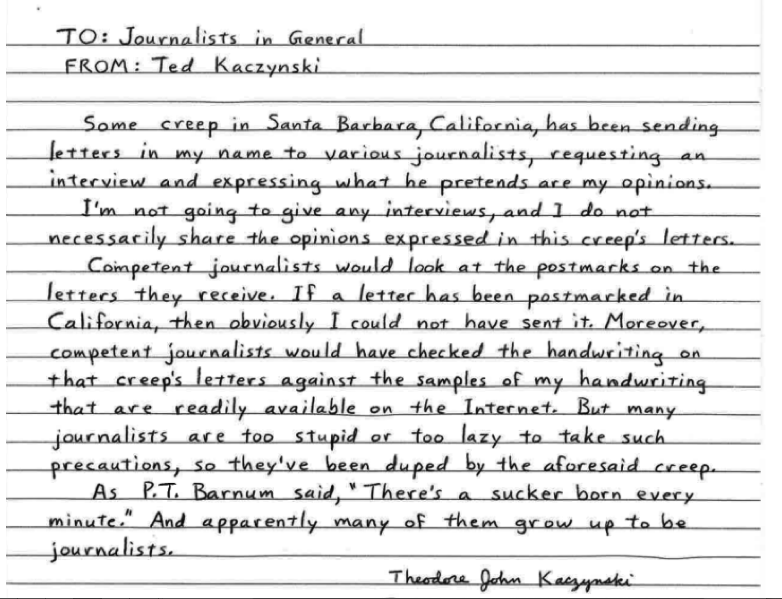 TO: Journalists in General
FROM: Ted Kaczynski
Some creep in Santa Barbara, California, has been sending
letters in my name to various journalists, requesting an
interview and expressing what he pretends are my opinions.
I'm not going to give any interviews, and I do not
necessarily share the opinions expressed in this creep's letters.
Competent journalists would look at the postmarks on the
letters they receive. If a letter has been postmarked in
California, then obviously I could not have sent it. Moreover,
competent journalists would have checked the handwriting on
that creep's letters against the samples of my handwriting
that are readily available on the Internet. But many
journalists are too stupid or too lazy to take such
precautions, so they've been duped by the aforesaid creep.
As P.T. Barnum said, "There's a sucker born every
minute." And apparently many of them grow up to be
journalists.
Theodore John Kaczynski